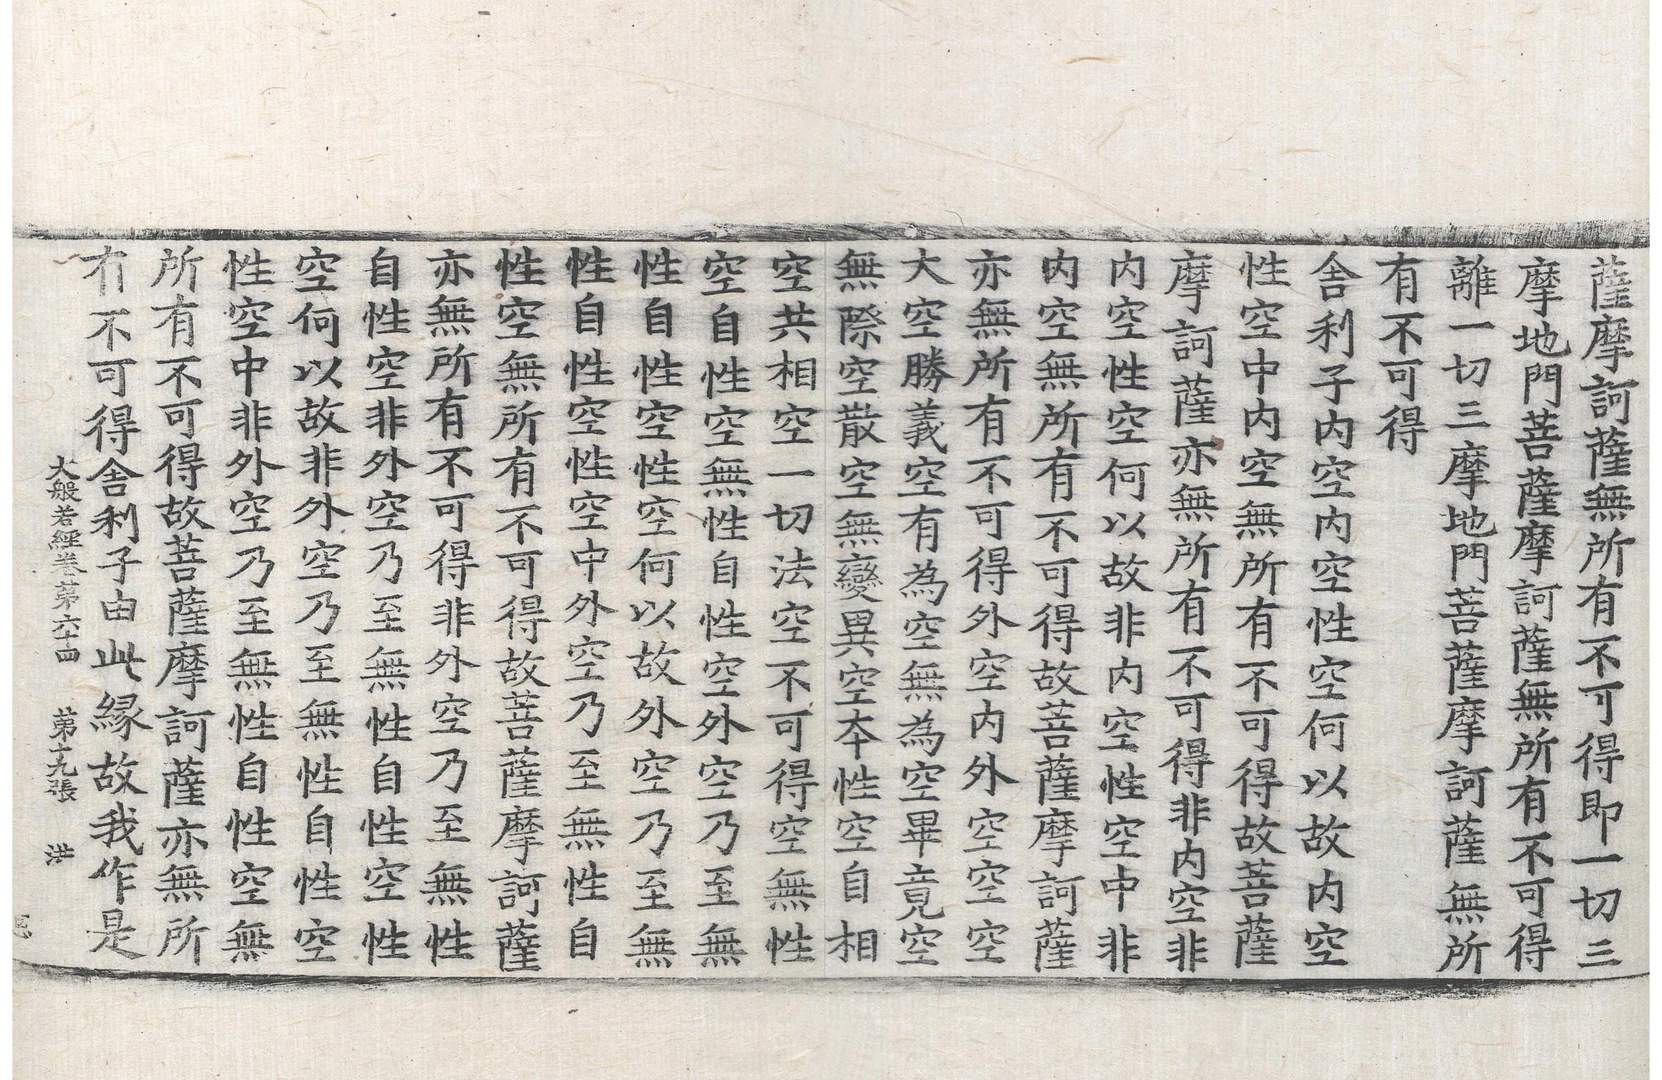 薩摩訶薩無所有不可得即一切三
摩地門菩薩摩訶薩無所有不可得
離一切三摩地門菩薩摩訶薩無所
有不可得
舎利子内空内空性空何以故内空
性空中内空無所有不可得故菩薩
摩訶薩亦無所有不可得非内空非
内空性空何以故非内空性空中非
内空無所有不可得故菩薩摩訶薩
亦無所有不可得外空内外空空空
大空勝義空有為空無為空畢竟空
無際空散空無變異空本性空自相
空共相空一切法空不可得空無性
空自性空無性自性空外空乃至無
性自性空性空何以故外空乃至無
性自性空性空中外空乃至無性自
性空無所有不可得故菩薩摩訶薩
亦無所有不可得非外空乃至無性
自性空非外空乃至無性自性空性
空何以故非外空乃至無性自性空
性空中非外空乃至無性自性空無
所有不可得故菩薩摩訶薩亦無所
有不可得舎利子由此縁故我作是
大般若經卷第六十四 第十九張 洪